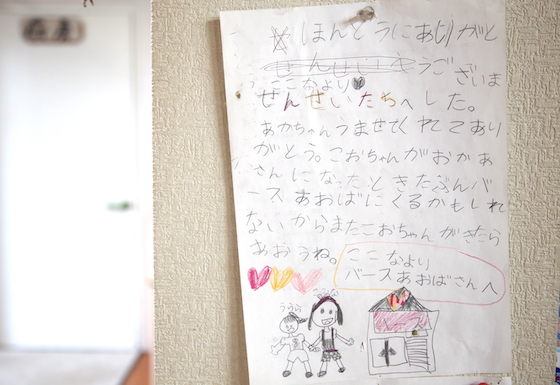 ほんとうにありがと
うございま
ここなより
せんせいたちへした。
あかちゃんうませてくれてあり
がとう。こおちゃんがおかあ
さんになったときたぶんバ
ースあおばにくるかもしれ
ないからまたこおちゃんがきたら
あおうね。
ここなより
バースあおばさんへ